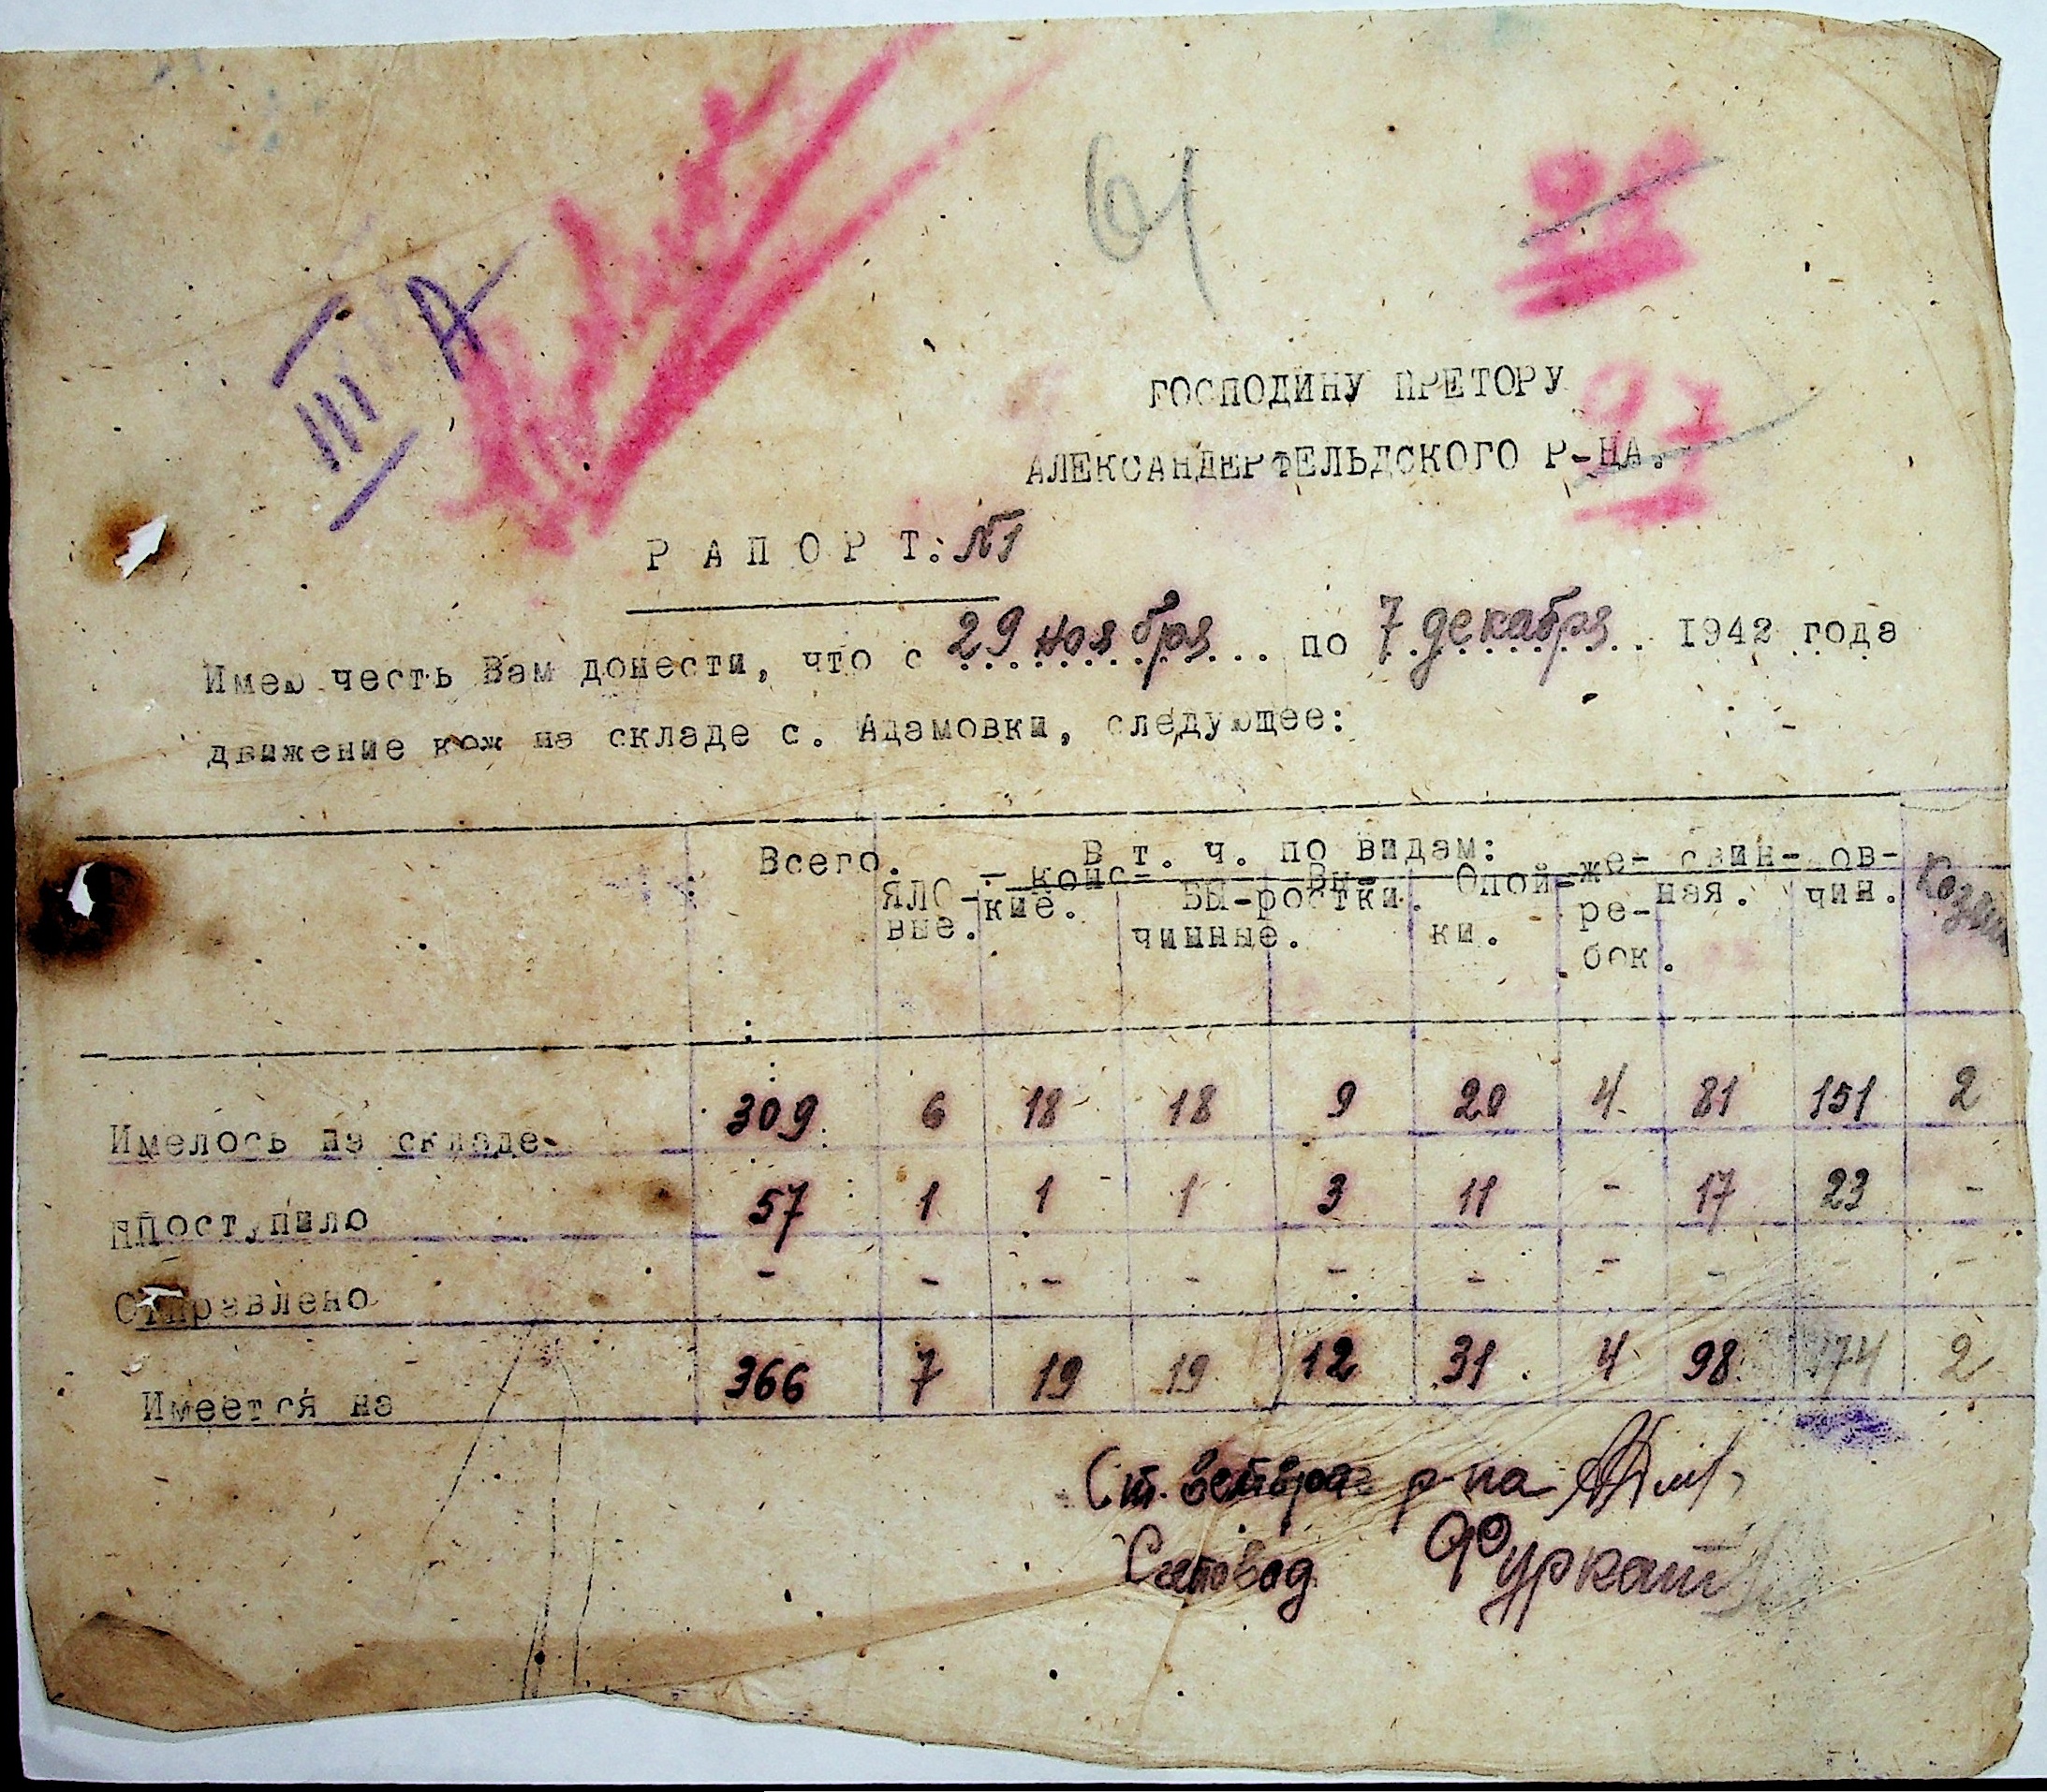 61
III А
ГОСПОДИНУ ПРЕТОРУ
97
АЛЕКСАНДЕРФЕЛЬДСКОГО Р-НА.
Р А П О Р Т: №1
Имею честь Вам донести, что с 29 ноября по 7 декабря 1942 года
движение кож на складе с. Адамовки, следующее:
Всего. В т. ч. по видам:
ЯЛО-вые. конс-кие. БЫ-чинные. Вы-ростки. Опой-ки. же-ре-бок. свин-ная. ов-чин. Козли
Имелось на складе 309 6 18 18 9 20 4 81 151 2
Поступило 57 1 1 1 3 11 - 17 23 -
Отправлено - - - - - - - - - -
Имеется на 366 7 19 19 12 31 4 98 174 2
Ст. р-на
Счетовод Фуркат